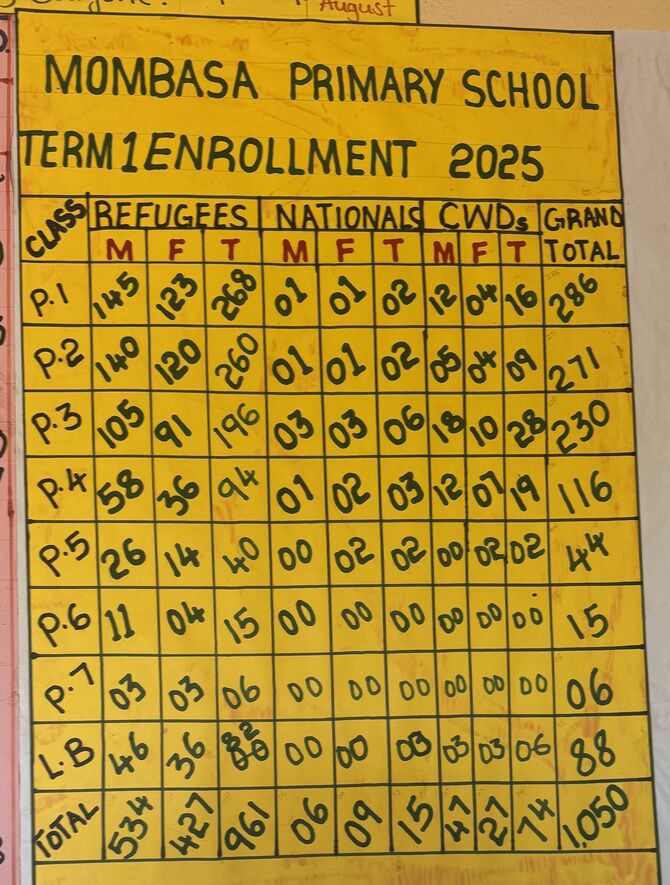 August
MOMBASA PRIMARY SCHOOL
TERM 1 ENROLLMENT 2025
CLASS REFUGEES NATIONALS CWDs GRAND TOTAL
M F T M F T M F T
P.1 145 123 268 01 01 02 12 04 16 286
P.2 140 120 260 01 01 02 05 04 09 271
P.3 105 91 196 03 03 06 18 10 28 230
P.4 58 36 94 01 02 03 12 07 19 116
P.5 26 14 40 00 02 02 00 02 02 44
P.6 11 04 15 00 00 00 00 00 00 15
P.7 03 03 06 00 00 00 00 00 00 06
L.B 46 36 82 00 00 03 03 06 88
TOTAL 534 427 961 06 09 15 47 27 74 1,050